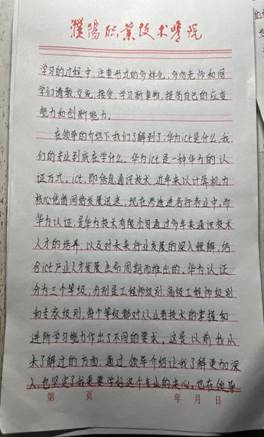 濮阳职业技术学院
学习的过程中,注重形式的多样化,多向老师和同
学们请教交流,接受、学习新事物,提高自己的应变
能力和创新能力。
在领导的介绍下我们了解到了:华为ict是什么,我
们的专业到底在学什么。华为ict是一种华为的认
证方式。ict,即信息通讯技术,近年来以计算机为
核心使得网络发展迅速,现在渗透进各行各业中,而
华为认证,是华为技术有限公司通过多年来通讯技术
人才的培养,以及对未来行业发展的深入理解,结
合ict产业人才发展生命周期而推出的,华为认证
分为三个等级,分别是工程师级别、高级工程师级别
和专家级别,每个等级都对从业者技术的掌握和
进所学习能力作出了不同的要求。这是以前我从
未了解过的方面,通过领导介绍让我了解更加深
入,也坚定了我要学好这个专业的决心,也在领导
第 页 年 月 日